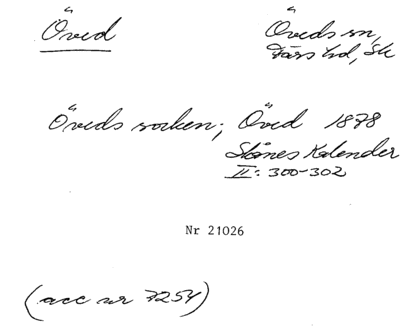 Öved
Öveds sn,
Färs hd, Sk
Öveds socken; Öved 1878
Skånes Kalender
II: 300-302
Nr 21026
(acc nr 7254)